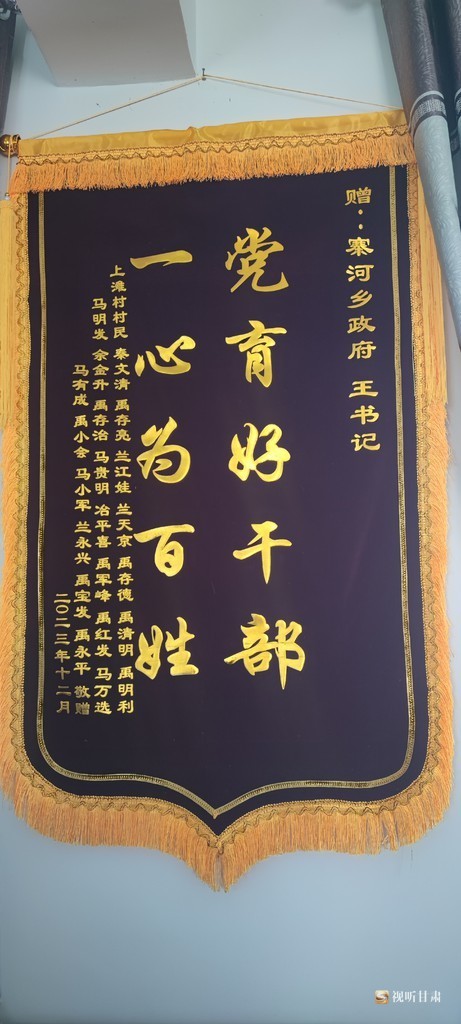 赠：寨河乡政府 王书记
党育好干部
一心为百姓
上滩村村民 秦文清 禹存亮 兰江娃 兰天京 禹存德 禹清明 禹明利
马明发 余金升 禹存治 马贵明 冶平喜 禹军峰 禹红发 马万选
马有成 禹小会 马小军 兰永兴 禹宝发 禹永平 敬赠
二〇二三年十二月
视听甘肃